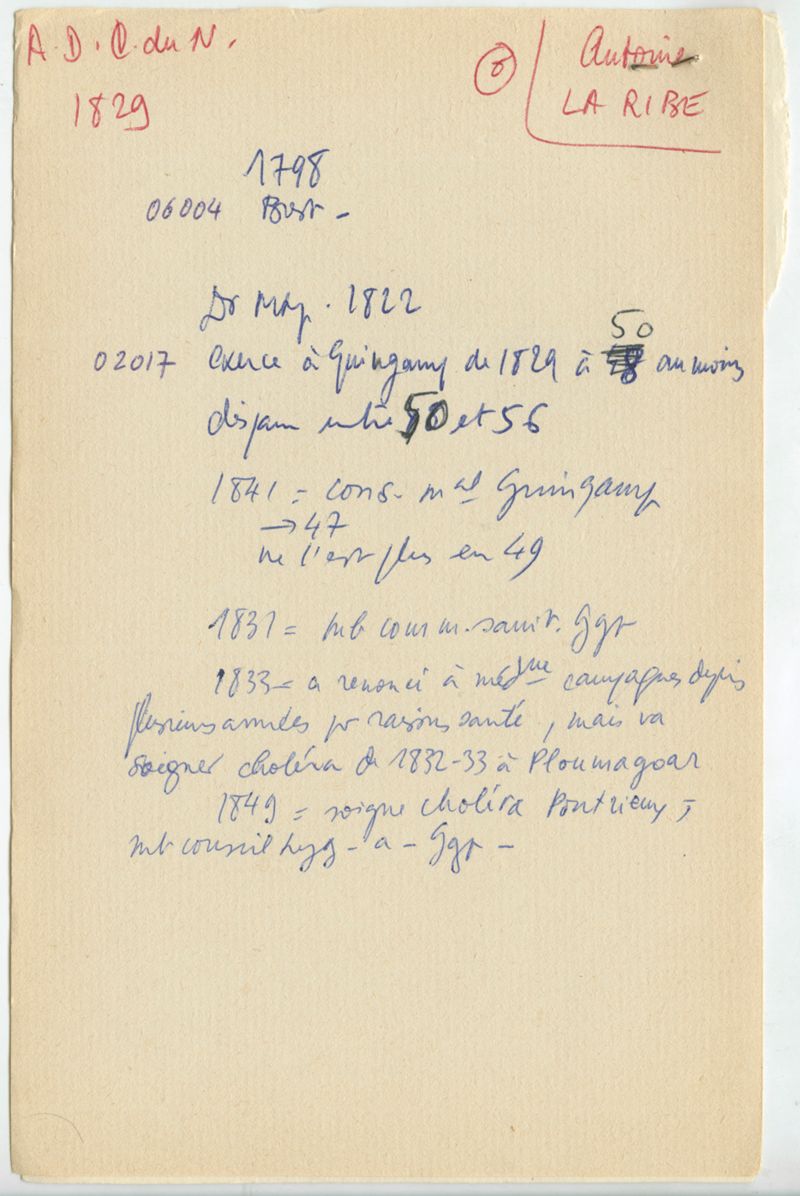 A. D. C. du N.
1829
Antoine
LA RIBE
1798
06004 Brest -
Dr Mtp. 1822
50
02017 exerce à Guingamp de 1829 à au moins
dispam entre 50 et 56
1841 = cons. mal Guingamp
→ 47
ne l'est plus en 49
1831 = mb comm. sanit. Ggp
1833 = a renoncé à médne campagnes depuis
plusieurs années pr raisons santé, mais va
soigner choléra de 1832-33 à Ploumagoar
1849 = soigne choléra Pontrieux ;
mb conseil hyg - a - Ggp -